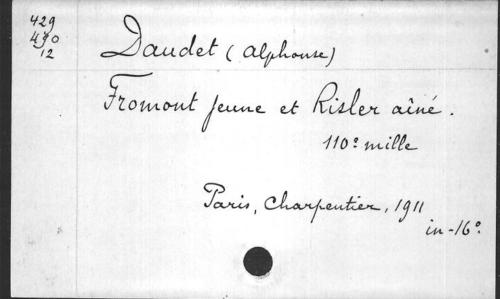 429
490
12
Daudet (Alphonse)
Fromont jeune et Risler aîné.
110e mille
Paris, Charpentier, 1911
in-16°.